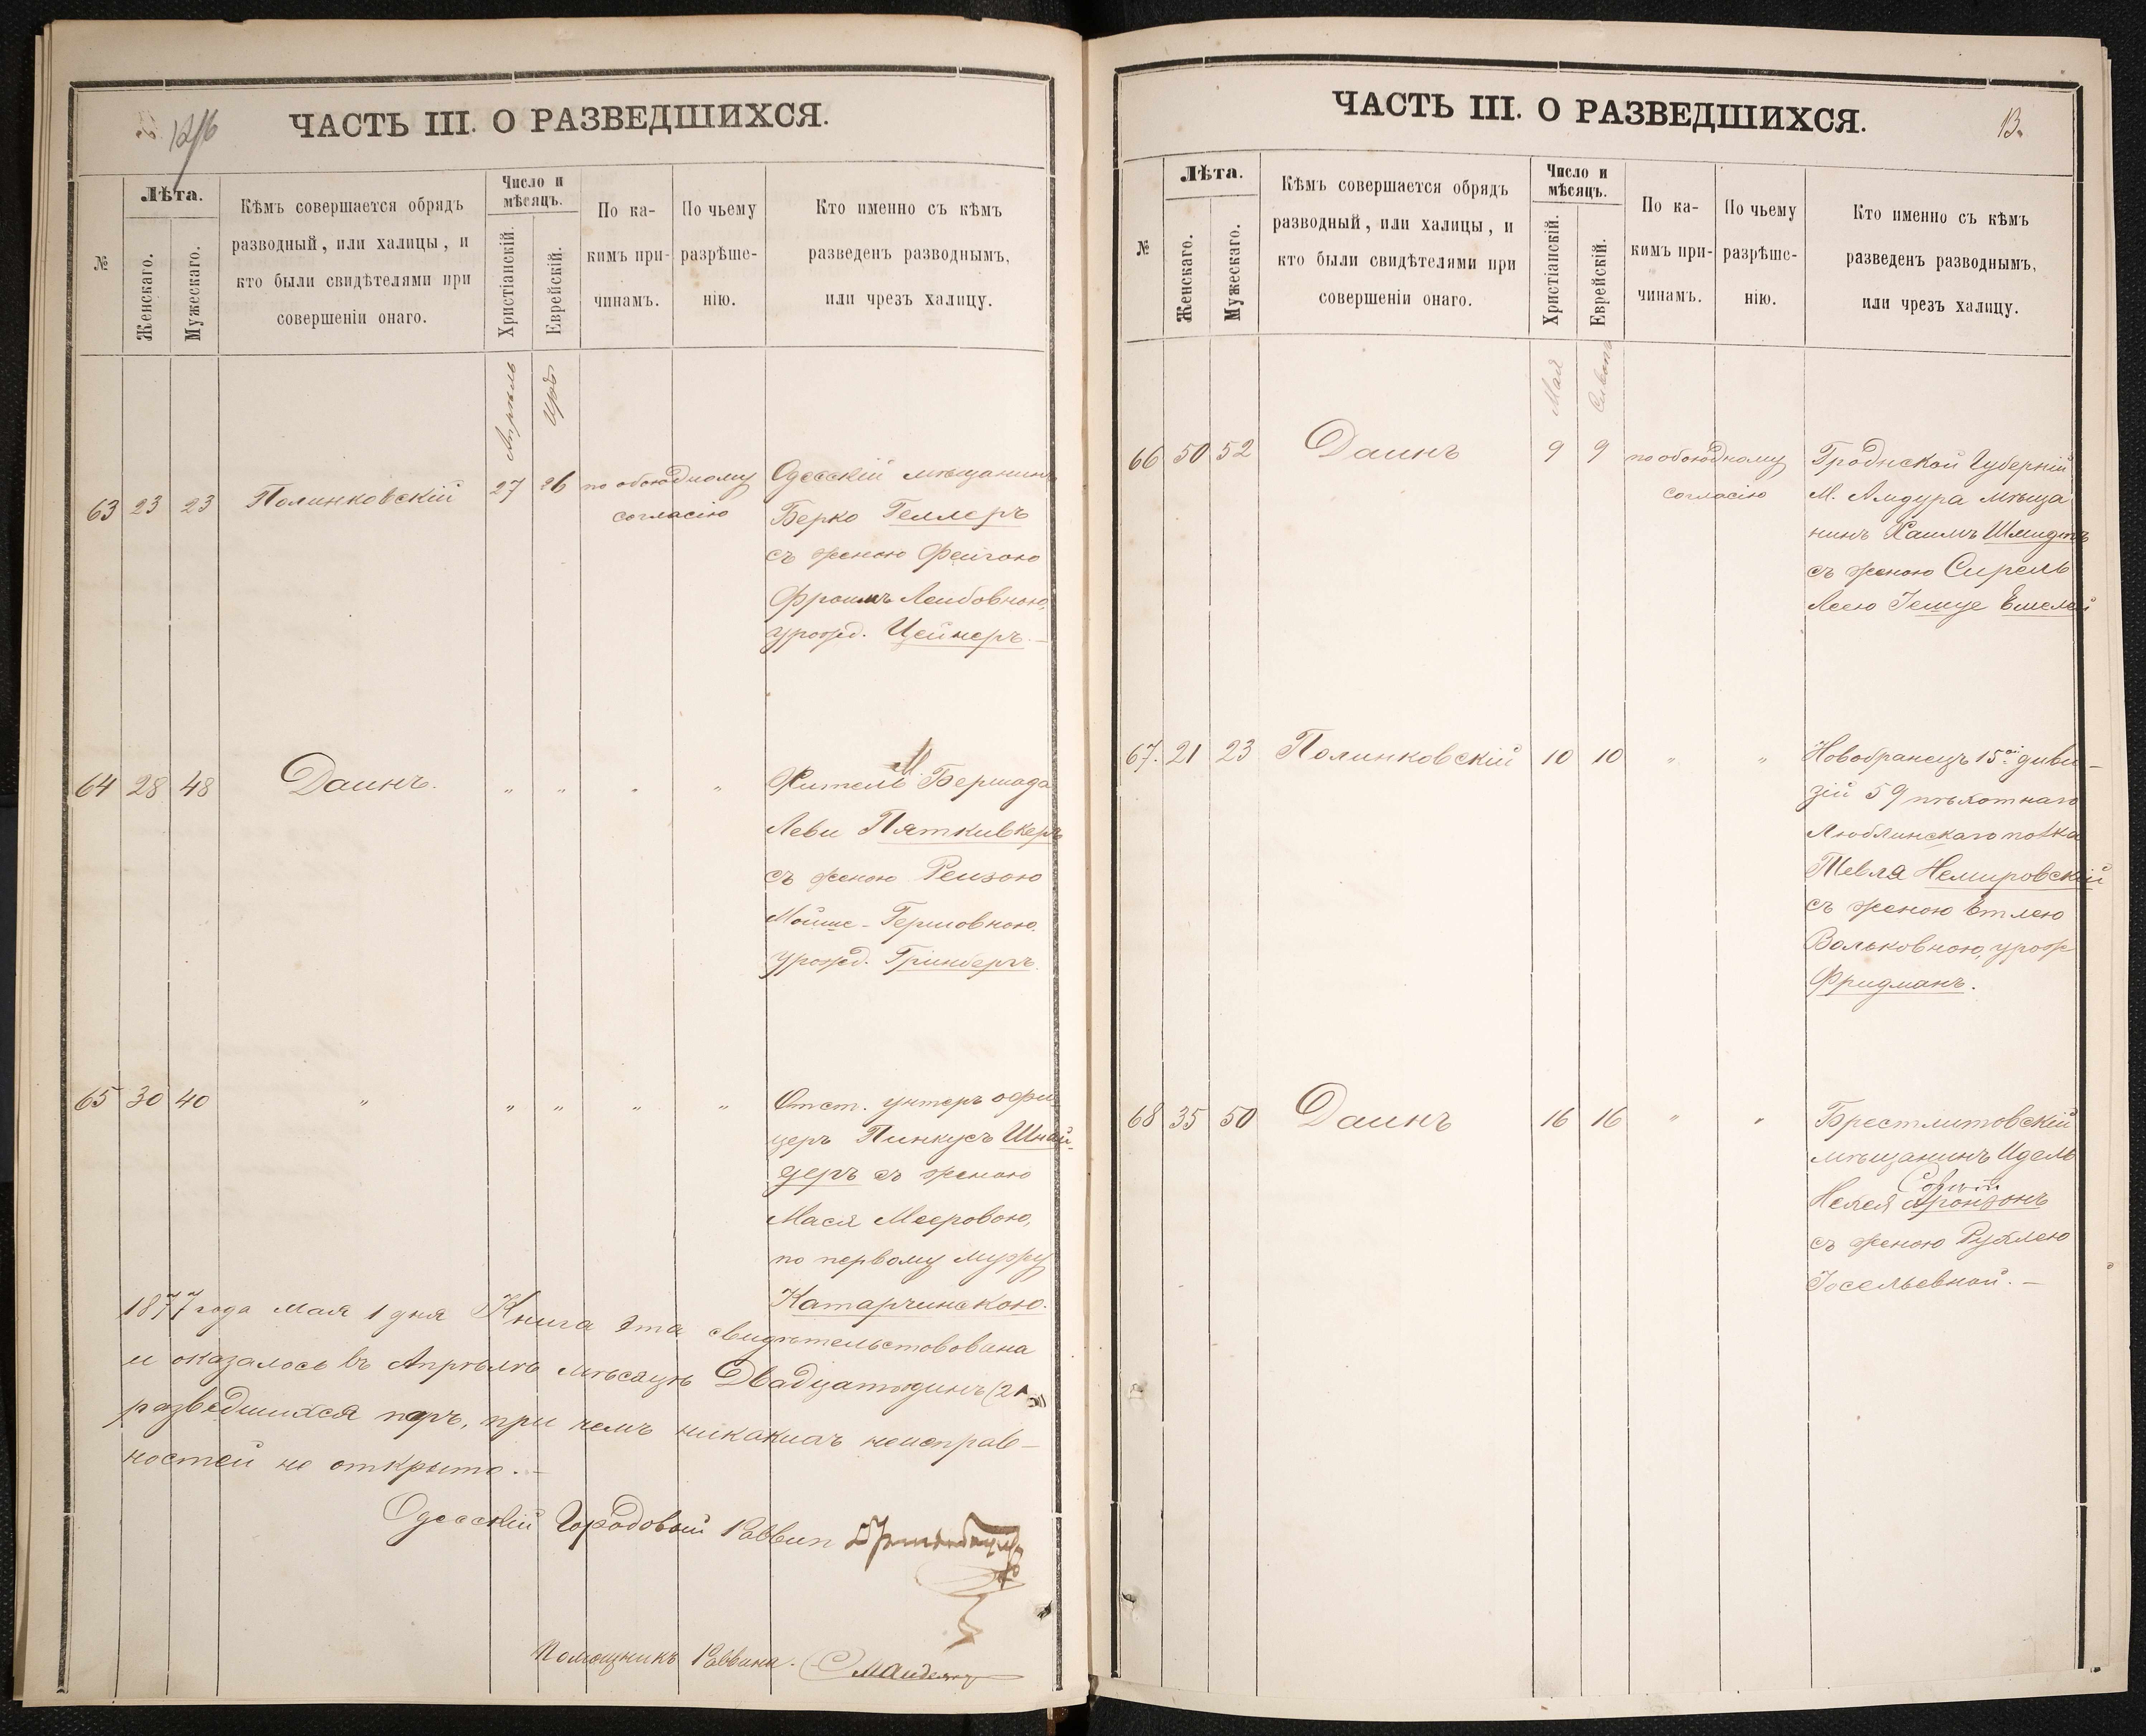 12/16
ЧАСТЬ III. О РАЗВЕДШИХСЯ.
№
Лѣта.
Женскаго.
Мужескаго.
Кѣмъ совершается обрядъ
разводный, или халицы, и
кто были свидѣтелями при
совершеніи онаго.
Число и
мѣсяцъ.
Христіанскій.
Еврейскій.
По ка-
кимъ при-
чинамъ.
По чьему
разрѣше-
нію.
Кто именно съ кѣмъ
разведенъ разводнымъ,
или чрезъ халицу.
Апрѣль
63 23 23 Полинковскій 27 26 по обоюдному
согласію
Одесскій мѣщанинъ
Берко Геллеръ
съ женою Фейгою
Фроимъ Лейбовною,
урожд. Цейнеръ. —
64 28 48 Даинъ. „ „ „ „
Житель М. Бершада
Леви Пяткивкеръ
съ женою Рейзою
Мойше-Гершовною.
урожд. Грінбергъ.
65 30 40 „ „ „ „ „
Отст. унтеръ офи
церъ Пинкусъ Шнай-
деръ съ женою
Мася Мееровою,
по первому мужу
Катарчинскою.
1877 года мая 1 дня Книга эта свидѣтельствована
и оказалось въ Апрѣлѣ мѣсяцѣ Двадцатьодинъ (21)
разведшихся паръ, при чемъ никакихъ неисправ-
ностей не открыто. —
Одесскій Городовой Раввин
Помощникъ Раввина.
ЧАСТЬ III. О РАЗВЕДШИХСЯ.
13.
№
Лѣта.
Женскаго.
Мужескаго.
Кѣмъ совершается обрядъ
разводный, или халицы, и
кто были свидѣтелями при
совершеніи онаго.
Число и
мѣсяцъ.
Христіанскій.
Еврейскій.
По ка-
кимъ при-
чинамъ.
По чьему
разрѣше-
нію.
Кто именно съ кѣмъ
разведенъ разводнымъ,
или чрезъ халицу.
Мая
66 50 52 Даинъ 9 9 по обоюдному
согласію
Гроднской Губерніи
М. Амдура мѣща
нинъ Хаимъ Шмидтъ
съ женою Сирель
Леею
67. 21 23 Полинковскій 10 10 „ „
Новобранецъ 15ой диви-
зіи 59 пѣхотнаго
Люблинскаго полка
Тевля Немировскій
съ женою Етлею
Вольковною, урож
Фридманъ.
68 35 50 Даинъ 16 16 „ „
Брестлитовскій
мѣщанинъ Идель
Аронзонъ
съ женою Рухлею
Іосельевной. —